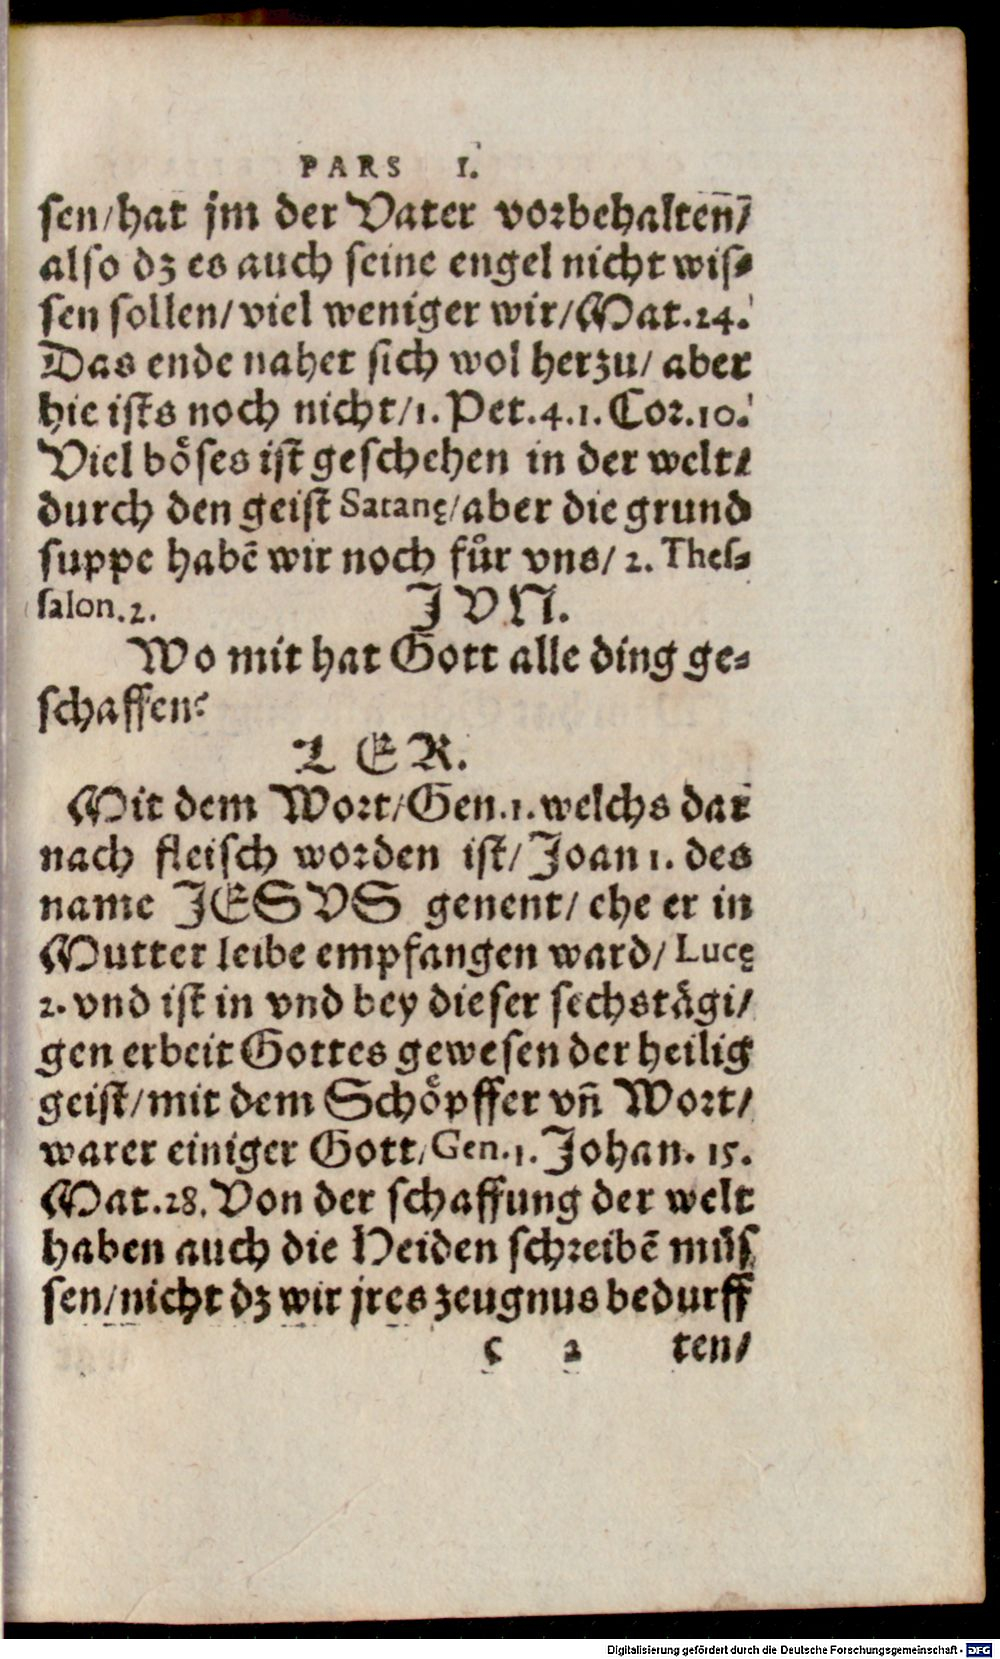 PARS I.
sen/hat jm der Vater vorbehalten̄/
also dz es auch seine engel nicht wis⸗
sen sollen/viel weniger wir/Mat.24.
Das ende nahet sich wol herzu/ aber
hie ists noch nicht/1. Pet.4.1. Cor.10.
Viel boͤses ist geschehen in der welt/
durch den geist Satanę/aber die grund
suppe habē wir noch fuͤr vns/ 2. Thes⸗
salon.2. JVN.
Wo mit hat Gott alle ding ge⸗
schaffen?
LER.
Mit dem Wort/Gen.1.welchs dar
nach fleisch worden ist/Joan 1. des
name JESVS genent/ ehe er in
Mutter leibe empfangen ward/ Lucę
2. vnd ist in vnd bey dieser sechstaͤgi/
gen erbeit Gottes gewesen der heilig
geist/mit dem Schoͤpffer vn̄ Wort/
warer einiger Gott/Gen.1. Johan. 15.
Mat.28. Von der schaffung der welt
haben auch die Heiden schreibē muͤs
sen/nicht dz wir jres zeugnus bedurff
c 2 ten/
Digitalisierung gefördert durch die Deutsche Forschungsgemeinschaft - DFG